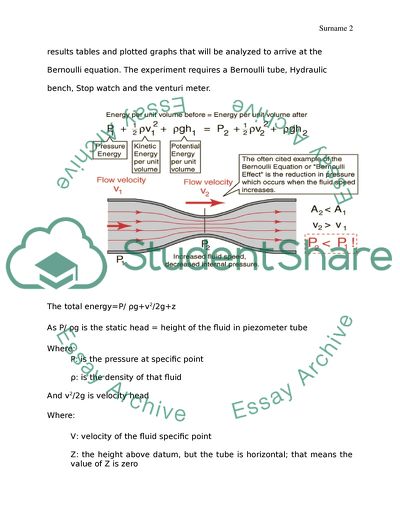 Surname 2
results tables and plotted graphs that will be analyzed to arrive at the
Bernoulli equation. The experiment requires a Bernoulli tube, Hydraulic
bench, Stop watch and the venturi meter.
Energy per unit volume before = Energy per unit volume after
P₁ + ½ρv₁² + ρgh₁ = P₂ + ½ρv₂² + ρgh₂
Pressure
Energy
Kinetic
Energy
per unit
volume
Potential
Energy
per unit
volume
The often cited example of the
Bernoulli Equation or "Bernoulli
Effect" is the reduction in pressure
which occurs when the fluid speed
increases.
Flow velocity
v₁
Flow velocity
v₂
A₂ < A₁
v₂ > v₁
P₂ < P₁!
P₁
P₂
Increased fluid speed,
decreased internal pressure.
StudentShare
Essay Archive
Essay Archive
Essay Archive
Essay Archive
The total energy=P/ ρg+v²/2g+z
As P/ ρg is the static head = height of the fluid in piezometer tube
Where:
P: is the pressure at specific point
ρ: is the density of that fluid
And v²/2g is velocity head
Where:
V: velocity of the fluid specific point
Z: the height above datum, but the tube is horizontal; that means the
value of Z is zero